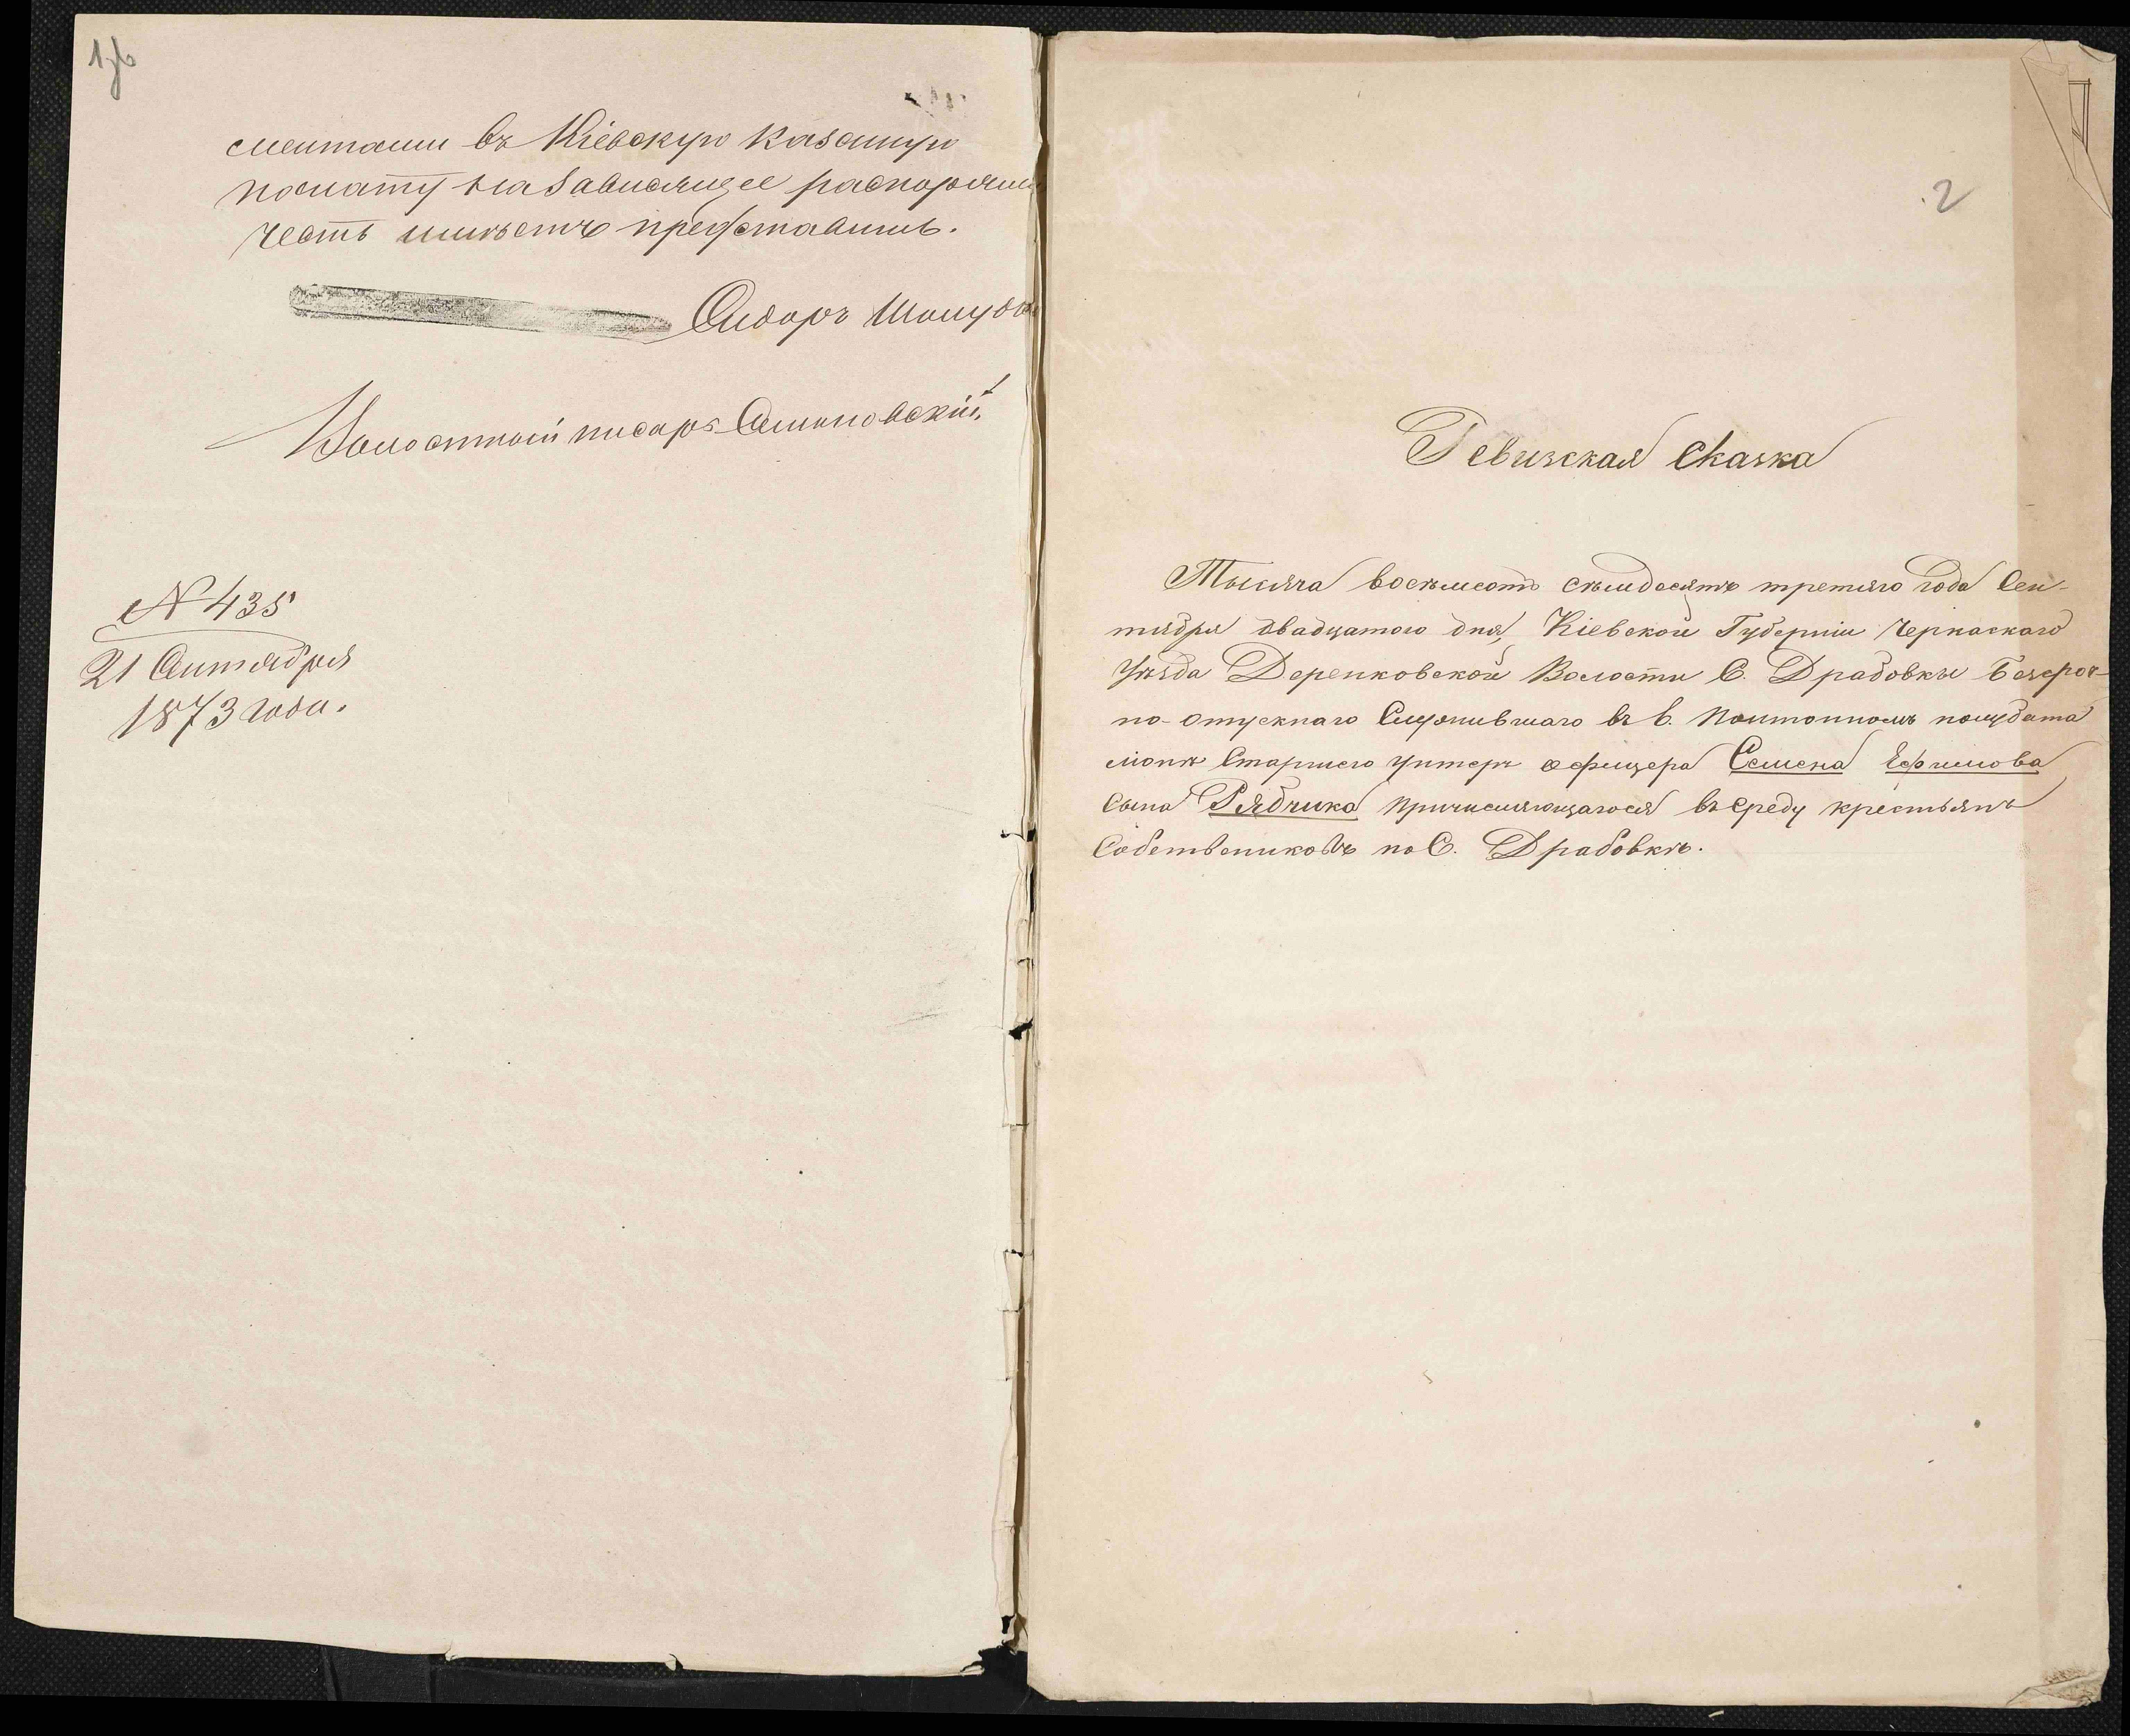 1об
ментами въ Кіевскую Казенную
палату на зависящее распоряже
честь имѣетъ представить.
Сидоръ
Волостной писарь Симановскій
N 435
21 Сентября
1873 года.
2
Ревизская Сказка
Тысяча восемьсотъ семьдесятъ третяго года Сен-
тября двадцатого дня, Кіевской Губерніи Черкаскаго
Уѣзда Деренковской Волости С. Драбовки Безсроч-
но-отпускнаго Служившаго въ 6. Понтонномъ полубата
ліонѣ Старшего унтеръ офицера Семена Ефимова
сына Рябчика причисляющагося въ среду крестьянъ
Собствениковъ по С. Драбовкѣ.